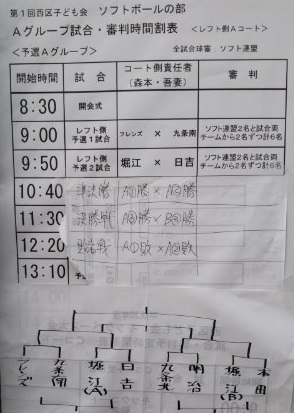 第1回西区子ども会 ソフトボールの部
Aグループ試合・審判時間割表 <レフト側Aコート>
<予選Aグループ> 全試合球審:ソフト連盟
開始時間 試合 コート側責任者(森本・吾妻) 審判
8:30 開会式
9:00 レフト側予選1試合 フレンズ × 九条南 ソフト連盟2名と試合両チームから2名ずつ計6名
9:50 レフト側予選2試合 堀江 × 日吉 ソフト連盟2名と試合両チームから2名ずつ計6名
10:40 準決勝 A①勝 × A②勝
11:30 決勝戦 A③勝 × B③勝
12:20 敗者戦 A①敗 × A②敗
13:10
フレンズ 九条南 堀江(A) 日吉 九条北 明治 堀江(B) 本田